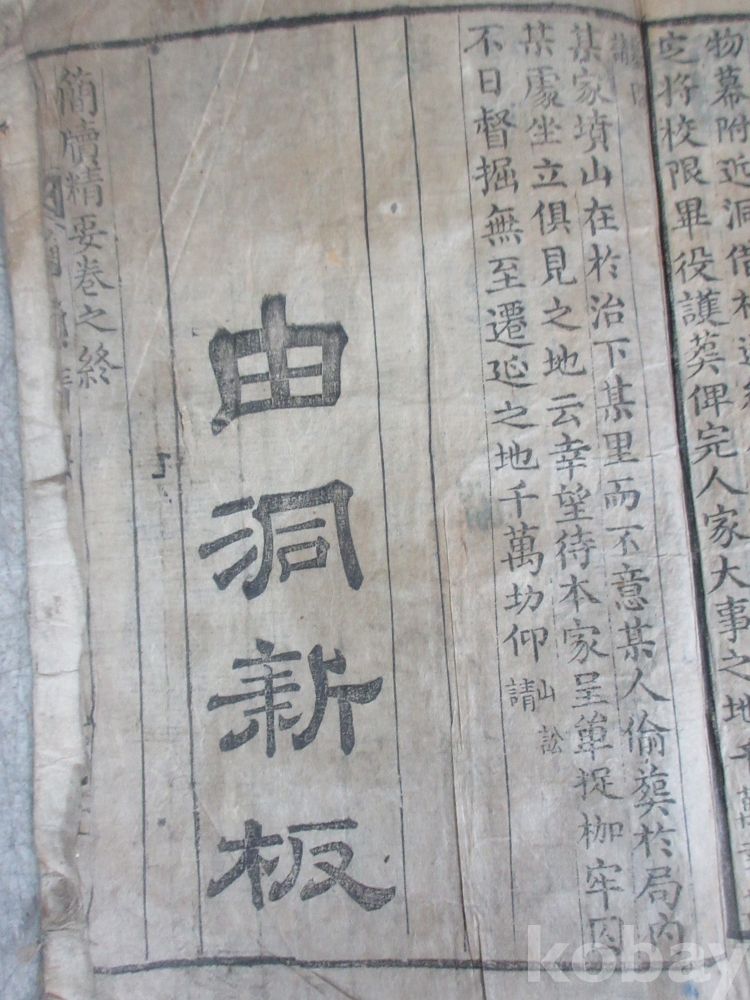 物幕附近洞
定將校限畢役護葬俾完人家大事之地千
某家墳山在於治下某里而不意某人偷葬於局內
某處坐立俱見之地云幸望待本家呈單捉枷牢囚
不日督掘無至遷延之地千萬切仰
山訟
請
由洞新板
簡牘精要卷之終
kobay